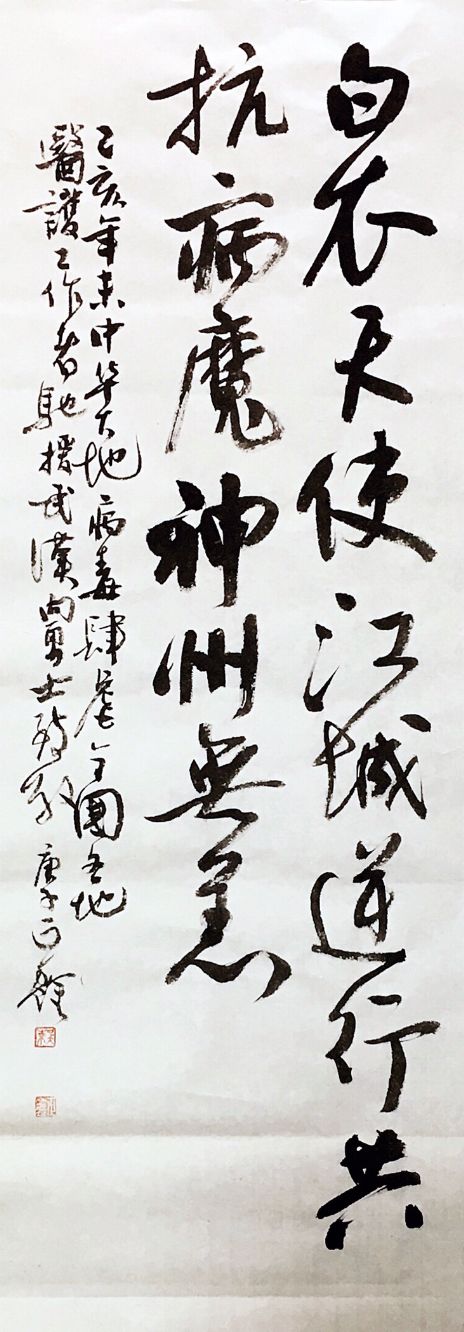 白衣天使江城逆行共
抗病魔神州無恙
己亥年末中华大地病毒肆虐全國各地
醫護工作者馳援武漢向勇士致敬 庚子正